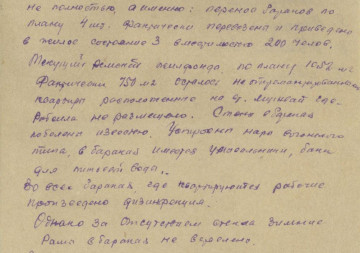 не полностью, а именно: перенос бараков по
плану 4 шт. Фактически перевезена и приведено
в жилое состояние 3 вместимостью 200 человек.
Текущий ремонт жилфонда, по плану 1052 м²
Фактически 750 м² осталось не отремонтировано
квартиры расположенные на
не размещено. Стены в бараках
побелено известью. Устроены нары вагонного
типа, в бараках имеются умывальники, баки
для питьевой воды.
Во всех бараках, где квартируются рабочие
произведено дизинфекция.
Однако за отсутствием стекла зимние
рамы в бараках не вставлено.